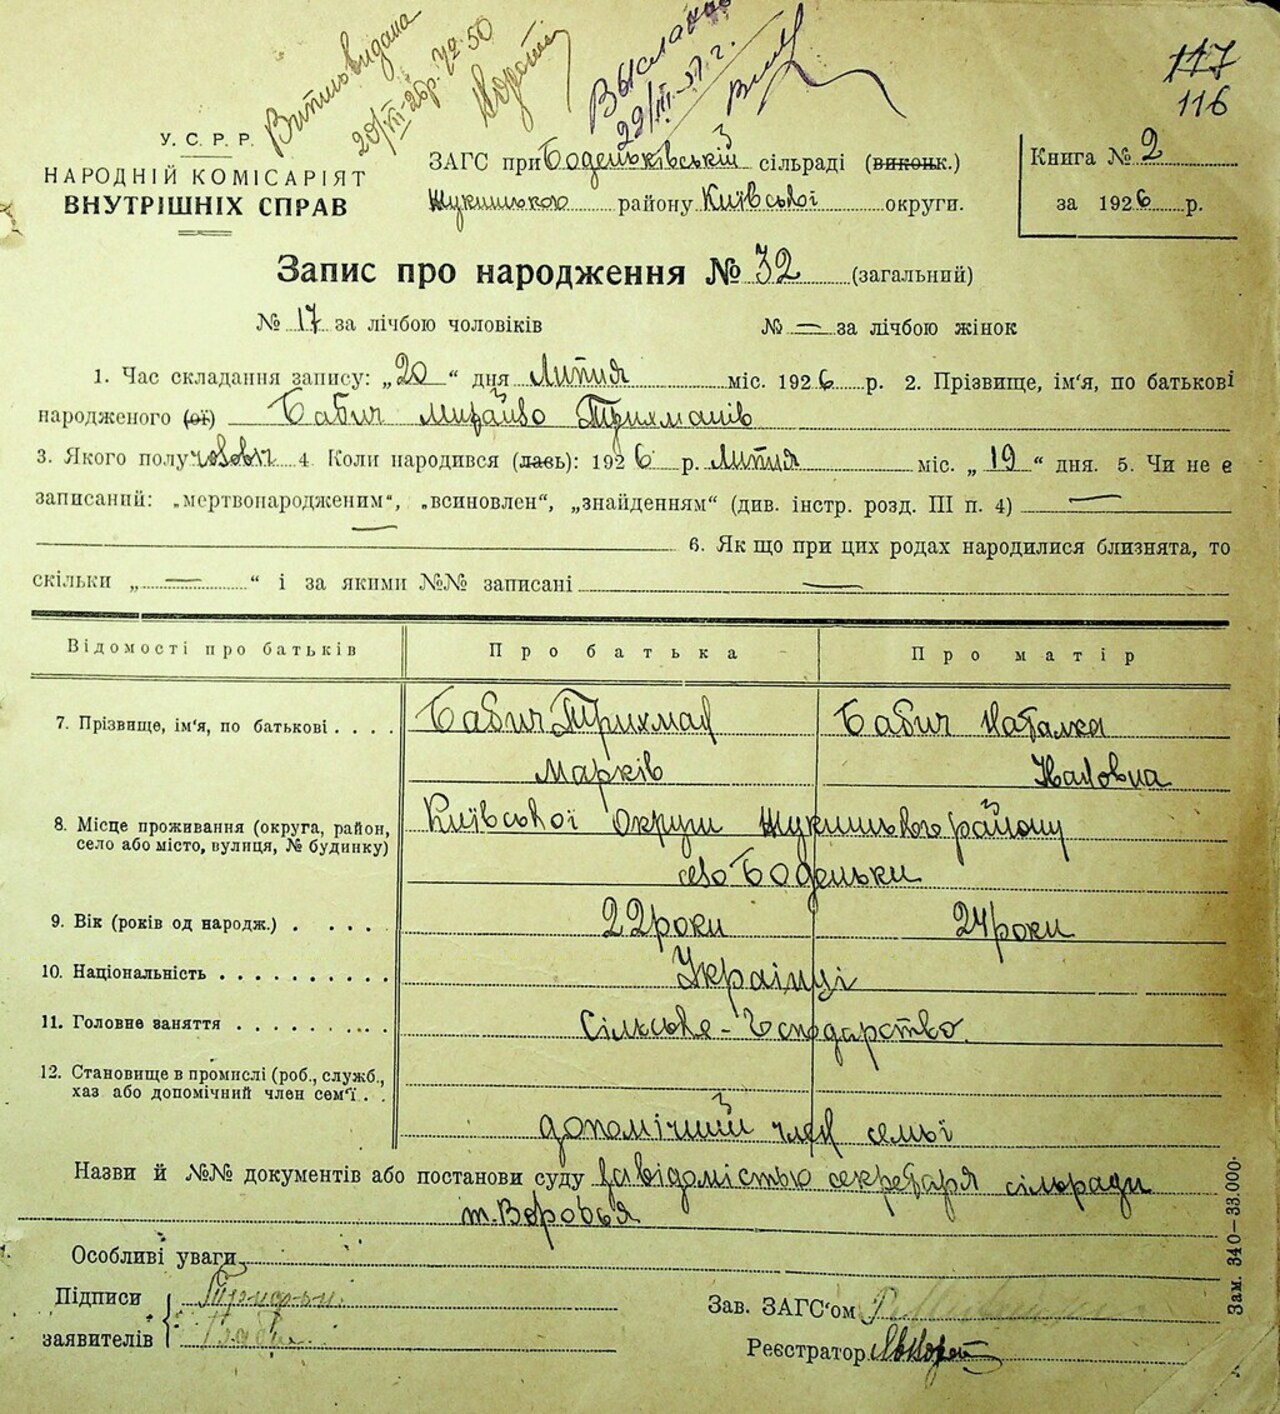 117
116
У. С. Р. Р.
НАРОДНІЙ КОМІСАРІЯТ
ВНУТРІШНІХ СПРАВ
ЗАГС при Боденьківській сільраді (виконк.)
району Київської округи.
Книга № 2
за 1926 р.
Запис про народження № 32 (загальний)
№ 17 за лічбою чоловіків № — за лічбою жінок
1. Час складання запису: „20“ дня Липня міс. 1926 р. 2. Прізвище, ім'я, по батькові
народженого (ої) Бабич
3. Якого полу чолов 4. Коли народився (лась): 1926 р. Липня міс. „19“ дня. 5. Чи не є
записаний: „мертвонародженим“, „всиновлен“, „знайденням“ (див. інстр. розд. III п. 4) —
— 6. Як що при цих родах народилися близнята, то
скільки „—“ і за якими №№ записані —
Відомості про батьків Про батька Про матір
7. Прізвище, ім'я, по батькові . . . . Бабич Бабич Наталка
Марків
8. Місце проживання (округа, район, село або місто, вулиця, № будинку) Київської округи району
село Боденьки
9. Вік (років од народж.) . . . . . 22 роки 24 роки
10. Національність . . . . . . . . . . Українці
11. Головне заняття . . . . . . . . . Сільське-Господарство
12. Становище в промислі (роб., служб., хаз або допомічний член сем'ї . .
допомічний член семьї
Назви й №№ документів або постанови суду за відомістью секретаря сільради
т. Воробья
Особливі уваги
Підписи
заявителів
Зав. ЗАГС'ом
Реєстратор
Зам. 340—33.000.